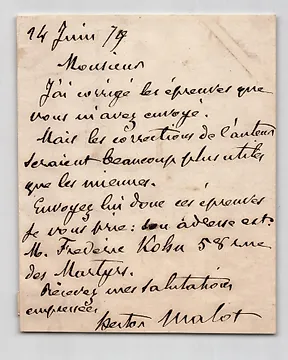 14 Juin 79
Monsieur
J'ai corrigé les épreuves que
vous m'avez envoyé.
Mais les corrections de l'auteur
seraient beaucoup plus utiles
que les miennes.
Envoyez lui donc ces épreuves
je vous prie : son adresse est :
M. Frédéric Kohn 58 rue
des Martyrs.
Recevez mes salutations
empressées
Hector Malot